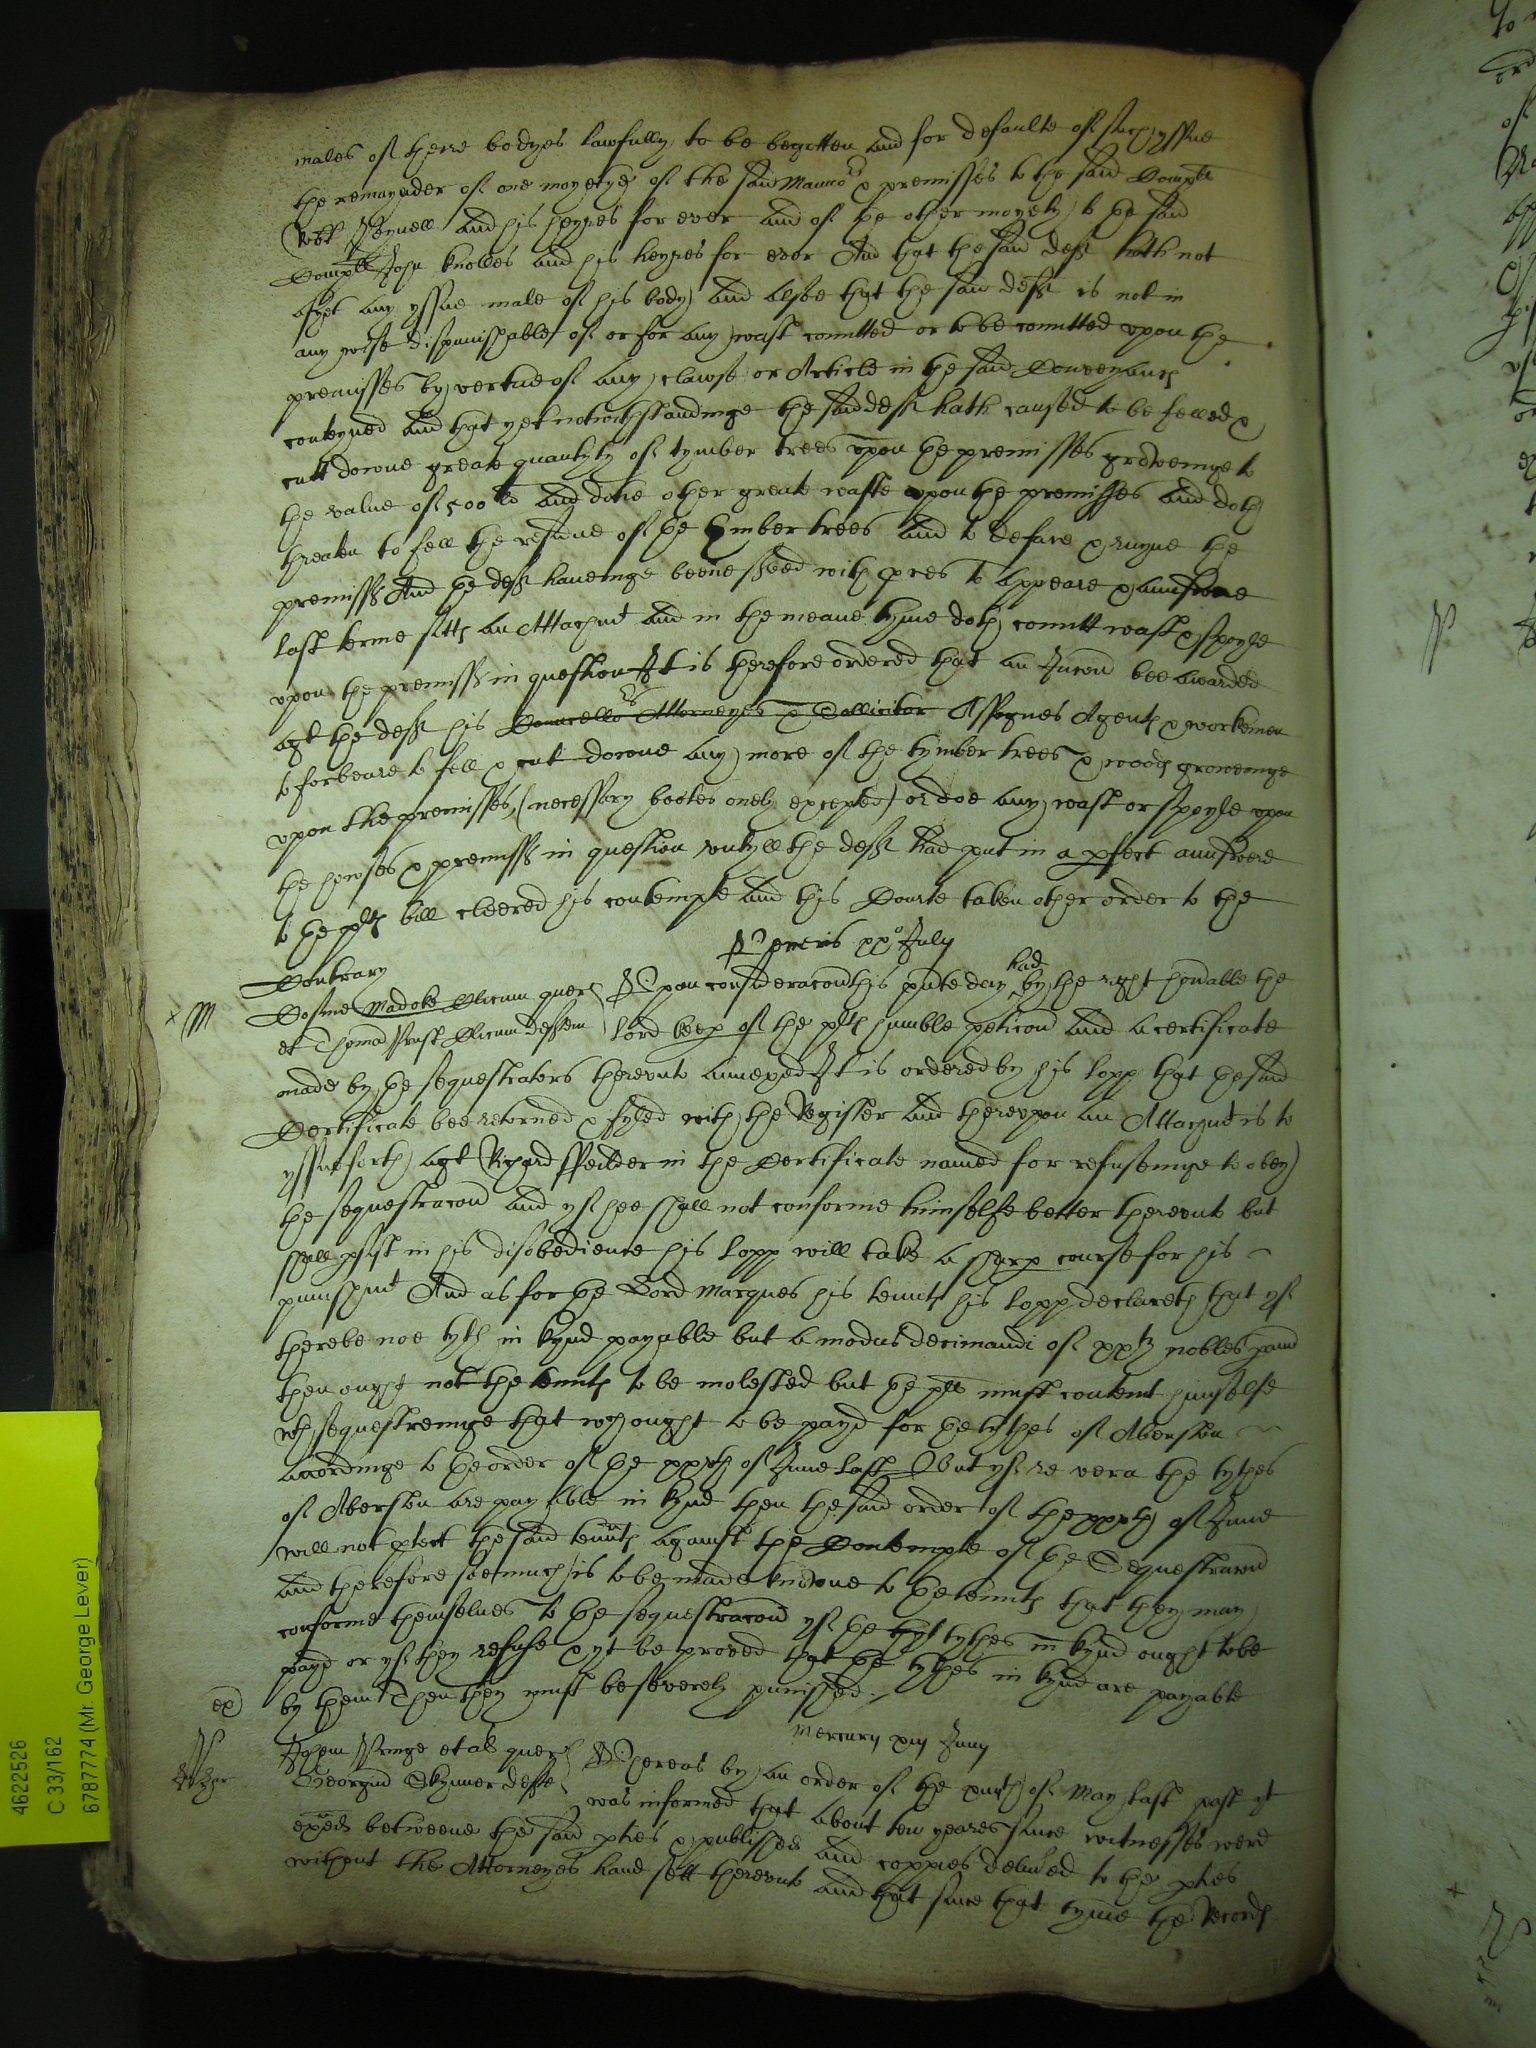 males of theire bodyes lawfully to be begotten and for defaulte of such yssue
the remaynder of one moyetye of the said Manno^rs & premisses to the said Compl^t
Rob^t Reynell and his heyres for ever and of the other moyety to the said
Compl^t John Knolles and his heyres for ever And that the said def^t hath not
as yet any yssue male of his body And alsoe that the said def^t is not in
any wise dispunishable of or for any wast comitted or to be comitted upon the
premisses by vertue of any clawse or Article in the said Conveyance
conteyned and that yet notwithstandinge the said def^t hath caused to be felled &
cutt downe greate quantyty of tymber trees upon the premisses groweinge to
the value of 500^li and done other greate waste upon the premisses and doth
threaten to fell the residue of the tymber trees and to deface & ruyne the
premiss^s And the def^t haveinge beene served with proces to appeare & answere
last terme sitts an Attachm^t and in the meane tyme doth comitt wast & spoyle
upon the premiss^s in question It is therefore ordered that an Iniucon bee awarded
ag^t the def^t his Councello^rs Attorneyes & Sollicitor Assignes Agents & workemen
to forbeare to fell & cut downe any more of the tymber trees & woods groweinge
upon the premisses (necessary bootes onely excepted) or doe any wast or spoyle upon
the howses & premiss^s in question untyll the def^t had put in a pfect aunswere
to the pl^ts bill cleered his contempt and this Courte taken other order to the
Contrary
Veneris xx^o July
Cosme Madoke Clicum quer^s
et Thoma Prust Clicum defftem
Upon consideracon this p^rnte day had by the right ho^norable the
lord keep of the pl^ts humble peticon and a certificate
made by the sequestrators thereunto annexed It is ordered by his lopp that the said
Certificate bee retorned & fyled with the Register and thereupon an Attachm^t is to
yssue forth ag^t Richard ffeilder in the Certificate named for refuseinge to obey
the sequestracon and yf hee shall not conforme himselfe better thereunto but
shall psist in his disobedience his lopp will take a sharp course for his
punishm^t And as for the Lord Marques his tennts his lopp declareth that yf
there be noe tyth in kynd payable but a modus decimandi of nobles p ann
then ought not the tennts to be molested but the pl^t must content himselfe
wth sequestringe that wch ought to be payd for the tythes of
accordinge to the order of the of June last But yf re vera the tythes
of are payable in kynd then the said order of the of June
will not ptect the said tennts against the Contempte of the Sequestracon
and therefore soe much is to be made knowne to the tennts that they may
conforme themselves to the sequestracon yf the tyt tythes in kynd ought to be
payd or yf they refuse & yt be proved that the tythes in kynd are payable
by them Then they must be severely punished
Mercury Juny
Johem et al quer^s
Georgiu Skynner deffte
Whereas by an order of the of May last past yt
was informed that about ten yeares since witnesses were
exed betweene the said pties & published and coppies delived to the pties
without the Attorneyes hand sett thereunto and that since that tyme the Records
4622526
C 33/162
6787774 (Mr. George Lever)